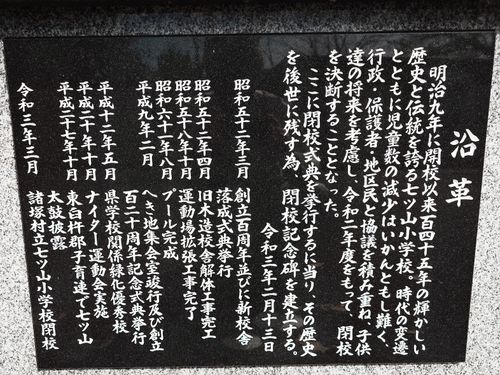 沿革
明治九年に開校以来百四十五年の輝かしい
歴史と伝統を誇る七ツ山小学校。時代の変遷
とともに児童数の減少はいかんともし難く、
行政・保護者・地区民と協議を積み重ね、子供
達の将来を考慮し、令和二年度をもって、閉校
を決断することとなった。
ここに閉校式典を挙行するに当り、その歴史
を後世に残す為、閉校記念碑を建立する。
令和三年二月十三日
昭和五十二年三月 創立百周年並びに新校舎
落成式典挙行
昭和五十二年四月 旧木造校舎解体工事完工
昭和五十八年十月 運動場拡張工事完了
昭和六十二年八月 プール完成
平成九年二月 へき地集会室竣行及び創立
百二十周年記念式典挙行
平成十二年五月 県学校関係緑化優秀校
平成二十年十月 ナイター運動会実施
平成二十七年十月 東臼杵郡子育連で七ツ山
太鼓披露
令和三年三月 諸塚村立七ツ山小学校閉校